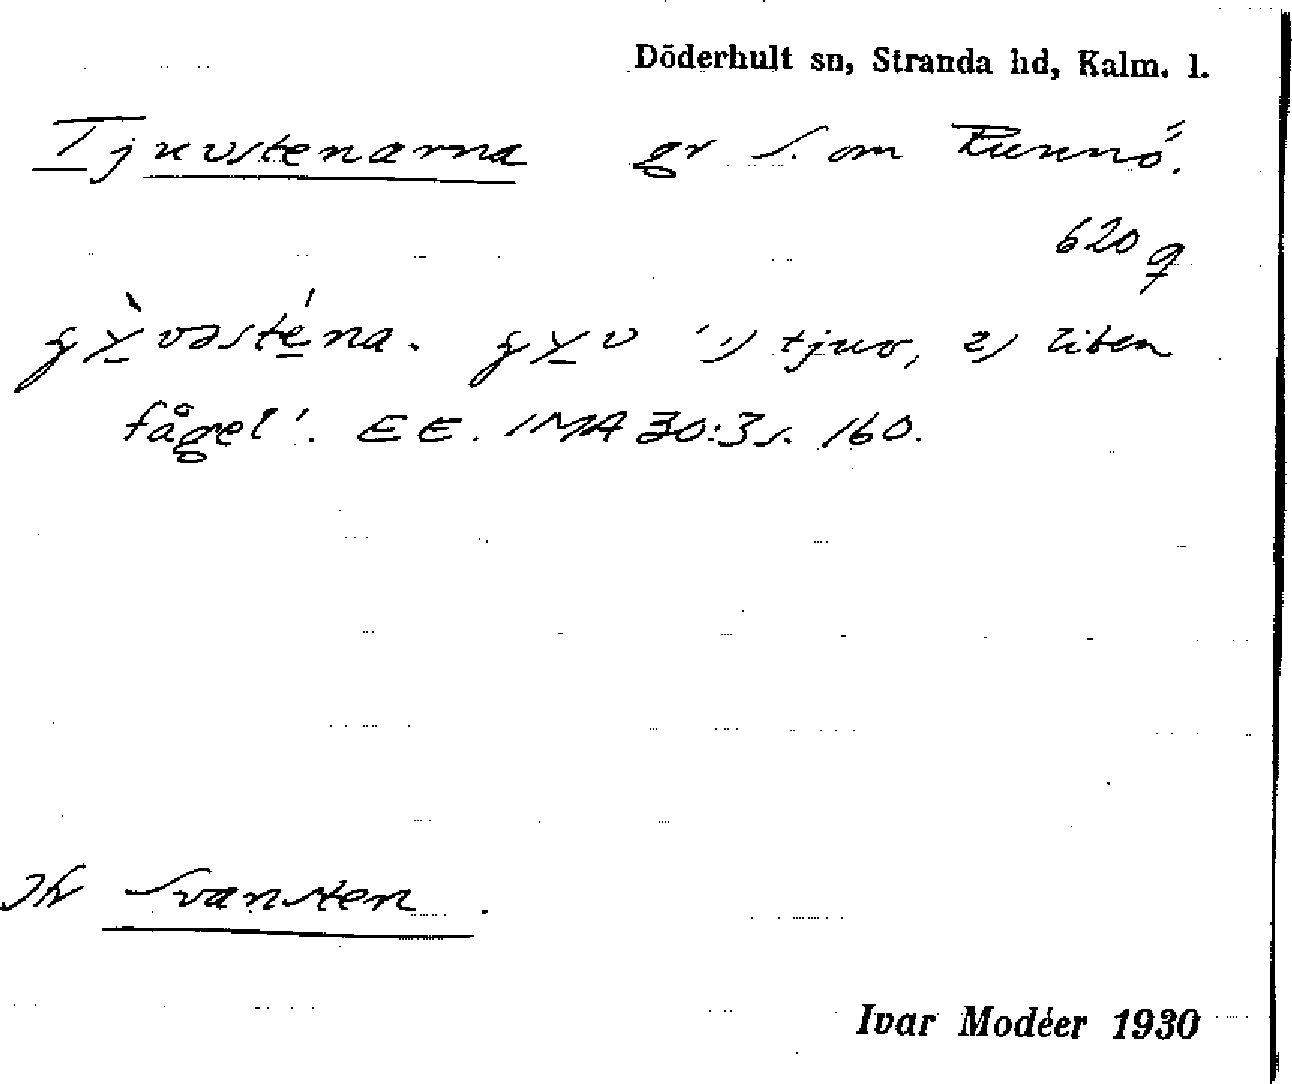 Döderhult sn, Stranda hd, Kalm. l.
Tjuvstenarna gr S. om Runnö.
620 q
fågel'. EE. IMA 30:3 s. 160.
'1) tjuv, 2) liten
Jfr Svansten.
Ivar Modéer 1930